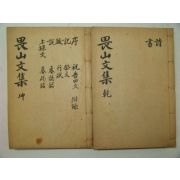 詩
書
畏山文集 乾
序
記
跋
說
上樑文
祝告文
祭文
行狀
墓誌銘
墓碣銘
附錄
畏山文集 坤